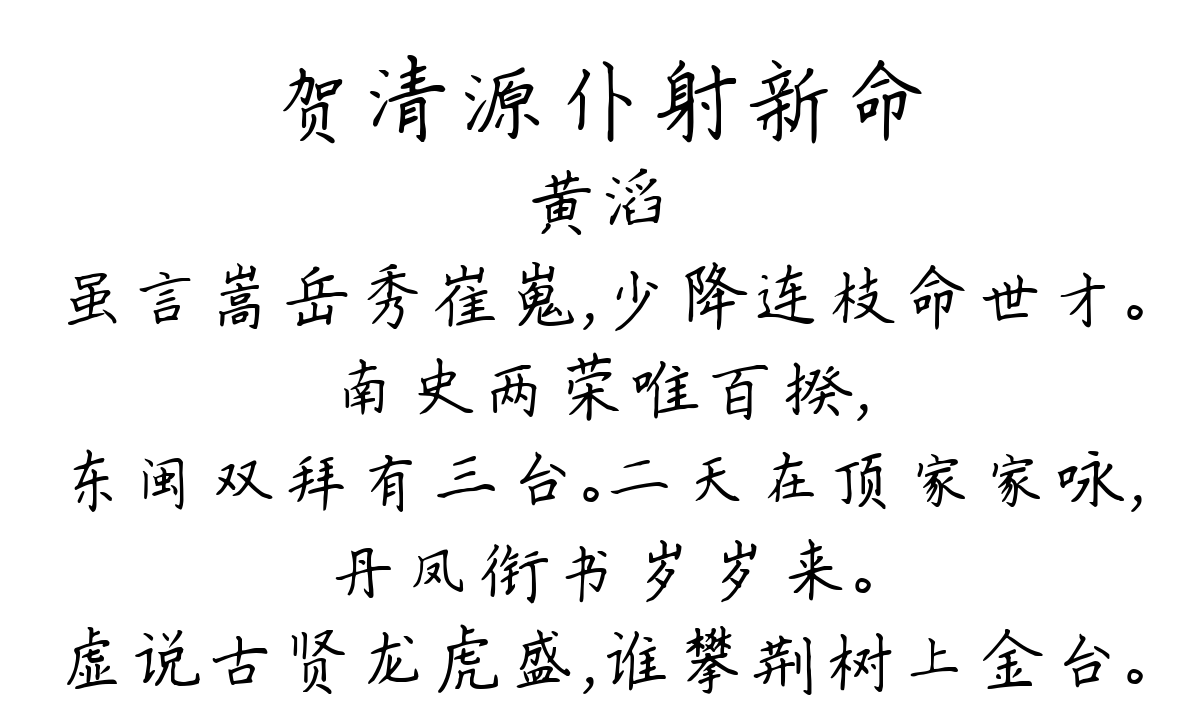 贺清源仆射新命
黄滔
虽言嵩岳秀崔嵬,少降连枝命世才。
南史两荣唯百揆,
东闽双拜有三台。二天在顶家家咏,
丹凤衔书岁岁来。
虚说古贤龙虎盛,谁攀荆树上金台。